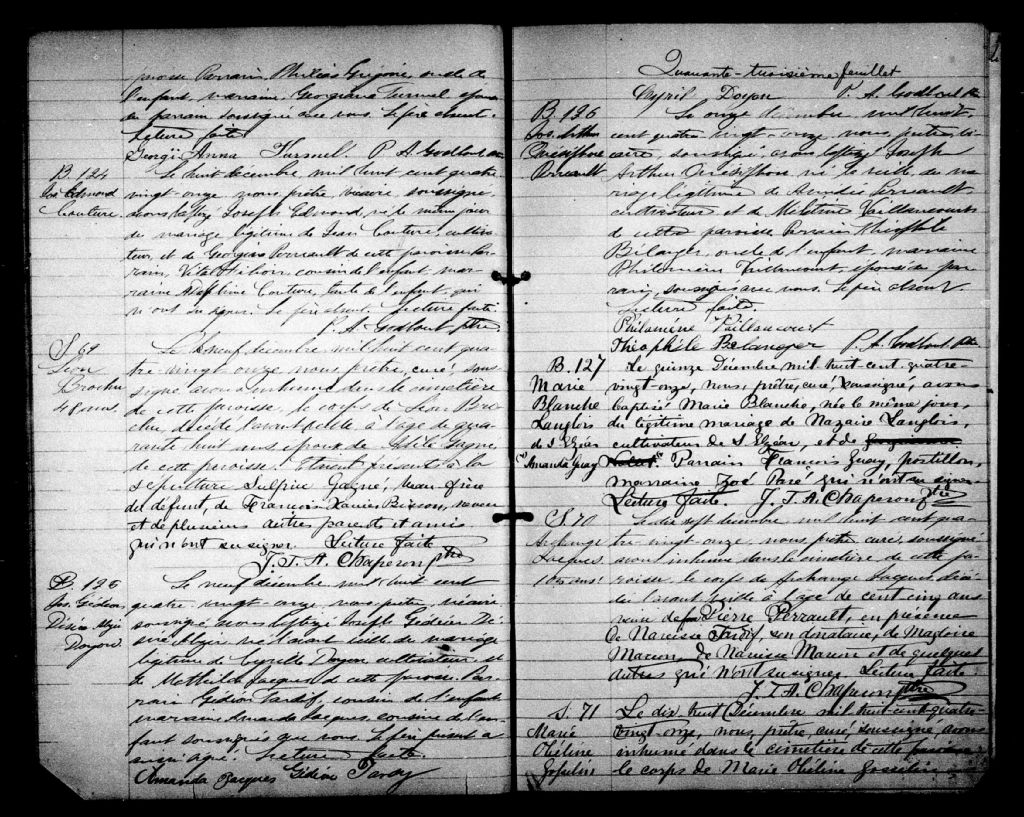 parrain Philias Grégoire, oncle de
l'enfant, marraine, Georgiana Turmel épouse
du parrain soussigné avec nous. Le père absent.
Lecture faite
Georgi Anna Turmel. P. A. Godbout ptre
B. 124
Jos Edmond
Couture
Le huit décembre, mil huit cent quatre
vingt-onze nous prêtre, vicaire, soussigné
avons baptizé Joseph Edmond, né le même jour
du mariage légitime de Jean Couture, cultiva
teur, et de Georgina Perreault de cette paroisse. Par
rain, Vital Filion, cousin de l'enfant, mar-
raine Couture, tante de l'enfant, qui
n'ont su signer. Le père absent. Lecture faite.
P. A. Godbout ptre
S. 69
Léon
Brochu
48 ans
Le neuf décembre, mil huit cent qua
tre-vingt-onze nous prêtre, curé, sous-
signé avons inhumé dans le cimetière
de cette paroisse, le corps de Léon Bro
chu, décédé l'avant veille à l'âge de qua-
rante huit ans, époux de Gagné
de cette paroisse. Etaient présents à la
sépulture Sulpice Gagné, beau-frère
du défunt, de François Xavier Bisson,
et de plusieurs autres parents et amis
qui n'ont su signer. Lecture faite
J. T. A. Chaperon ptre
B. 125
Jos. Gédéon
Désiré Alzi
Doyon
Le neuf décembre mil huit cent
quatre-vingt-onze nous prêtre, vicaire
soussigné avons baptizé Joseph Gédéon Dé
siré Alzi né l'avant veille du mariage
légitime de Cyrille Doyon cultivateur et
de Mathilde Jacques de cette paroisse. Par
rain Gédéon Tardif, cousin de l'enfant
marraine Amanda Jacques, cousine de l'en
fant soussignés avec nous. Le père présent a
aussi signé. Lecture faite.
Amanda Jacques Gédéon Tardif
Quarante-troisième feuillet
Cyril Doyon P. A. Godbout ptre
B. 126
Jos. Arthur
Ctésiphore
Perreault
Le onze décembre, mil huit-
cent quatre vingt-onze, nous, prêtre vi
caire, soussigné avons baptizé Joseph
Arthur Ctésiphon né du ma
riage légitime de Perreault
cultivateur et de Vaillancourt
de cette paroisse Parrain Théophile
Bélanger, oncle de l'enfant, marraine
Philomène Vaillancourt, épouse du par
rain, soussignés avec nous. Le père absent
Lecture faite.
Philomène Vaillancourt
Théophile Bélanger P. A. Godbout Ptre
B. 127
Marie
Blanche
Langlois
de S. Elzéar
Amanda Guay
Le quinze Décembre mil huit cent quatre-
vingt-onze, nous, prêtre, curé soussigné, avons
baptisé Marie Blanche, née le même jour,
du légitime mariage de Nazaire Langlois,
cultivateur de S. Elzéar, et de
Parrain François Guay, postillon,
marraine Zoé Paré qui n'ont su signer
Lecture faite. J. T. A. Chaperon ptre
S. 70
Archange
Jacques
105 ans
Le dix sept décembre, mil huit cent qua-
tre-vingt-onze, nous, prêtre curé, soussigné
avons inhumé dans le cimetière de cette pa-
roisse, le corps de Archange Jacques décé-
dée l'avant veille à l'âge de cent cinq ans
veuve de Pierre Perrault, en présence
de Narcisse Tardif, son donataire, de Magloire
Marcou, de Narcisse Marcou et de quelques
autres qui n'ont su signer. Lecture faite
J. T. A. Chaperon ptre
S. 71
Marie
Obéline
Gosselin
Le dix huit Décembre mil huit cent quatre-
vingt-onze, nous, prêtre, curé, soussigné, avons
inhumé dans le cimetière de cette paroisse
le corps de Marie Obéline Gosselin